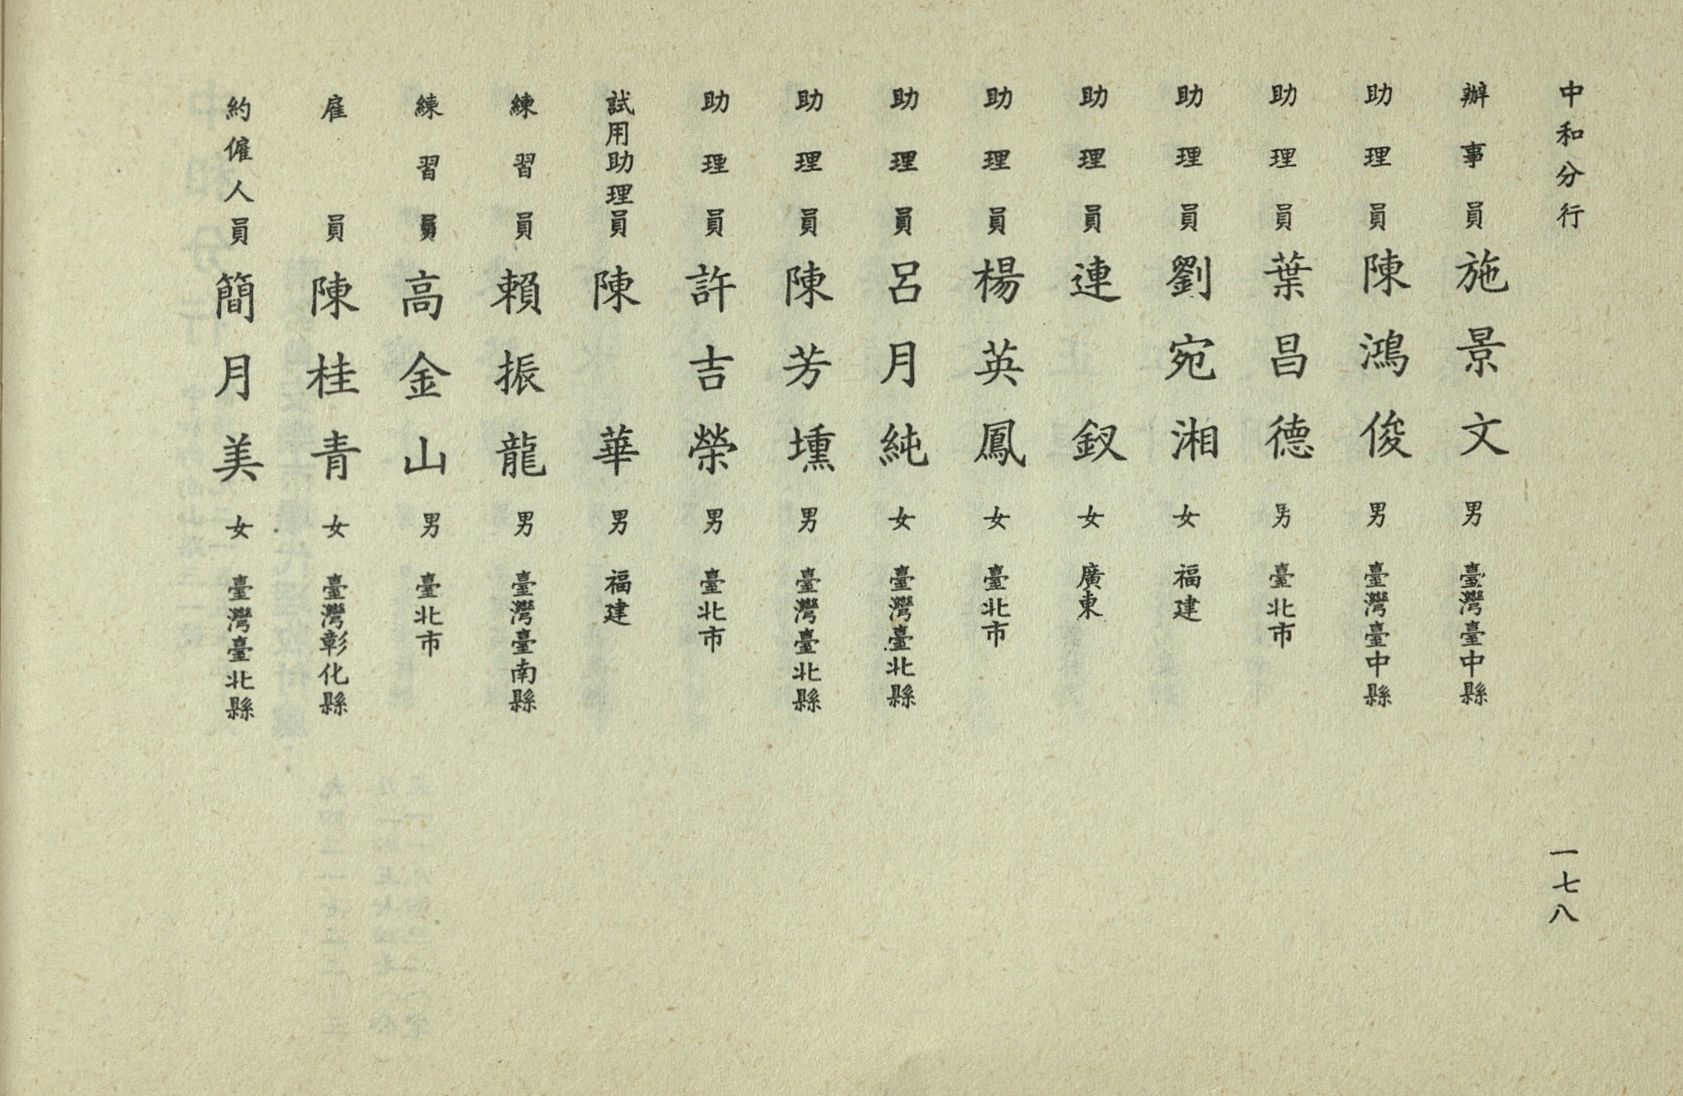 中和分行
一七八
辦事員 施景文 男 臺灣臺中縣
助理員 陳鴻俊 男 臺灣臺中縣
助理員 葉昌德 男 臺北市
助理員 劉宛湘 女 福建
助理員 連釵 女 廣東
助理員 楊英鳳 女 臺北市
助理員 呂月純 女 臺灣臺北縣
助理員 陳芳壎 男 臺灣臺北縣
助理員 許吉榮 男 臺北市
試用助理員 陳華 男 福建
練習員 賴振龍 男 臺灣臺南縣
練習員 高金山 男 臺北市
雇員 陳桂青 女 臺灣彰化縣
約僱人員 簡月美 女 臺灣臺北縣